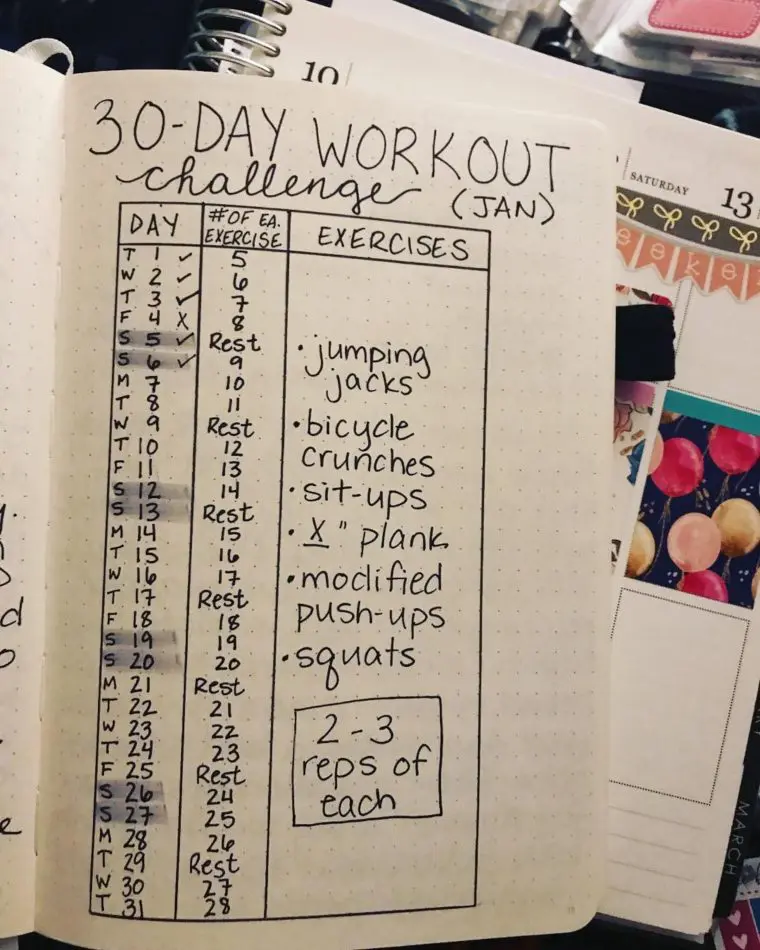 10
30-DAY WORKOUT
challenge
(JAN)
SATURDAY
13
DAY
# OF EA.
EXERCISE
EXERCISES
T 1 ✓ 5
W 2 ✓ 6
T 3 ✓ 7
F 4 X 8
S 5 ✓ Rest
S 6 ✓ 9
M 7 10
T 8 11
W 9 Rest
T 10 12
F 11 13
S 12 14
S 13 Rest
M 14 15
T 15 16
W 16 17
T 17 Rest
F 18 18
S 19 19
S 20 20
M 21 Rest
T 22 21
W 23 22
T 24 23
F 25 Rest
S 26 24
S 27 25
M 28 26
T 29 Rest
W 30 27
T 31 28
• jumping
jacks
• bicycle
crunches
• sit-ups
• X " plank
• modified
push-ups
• squats
2 - 3
reps of
each
MARCH